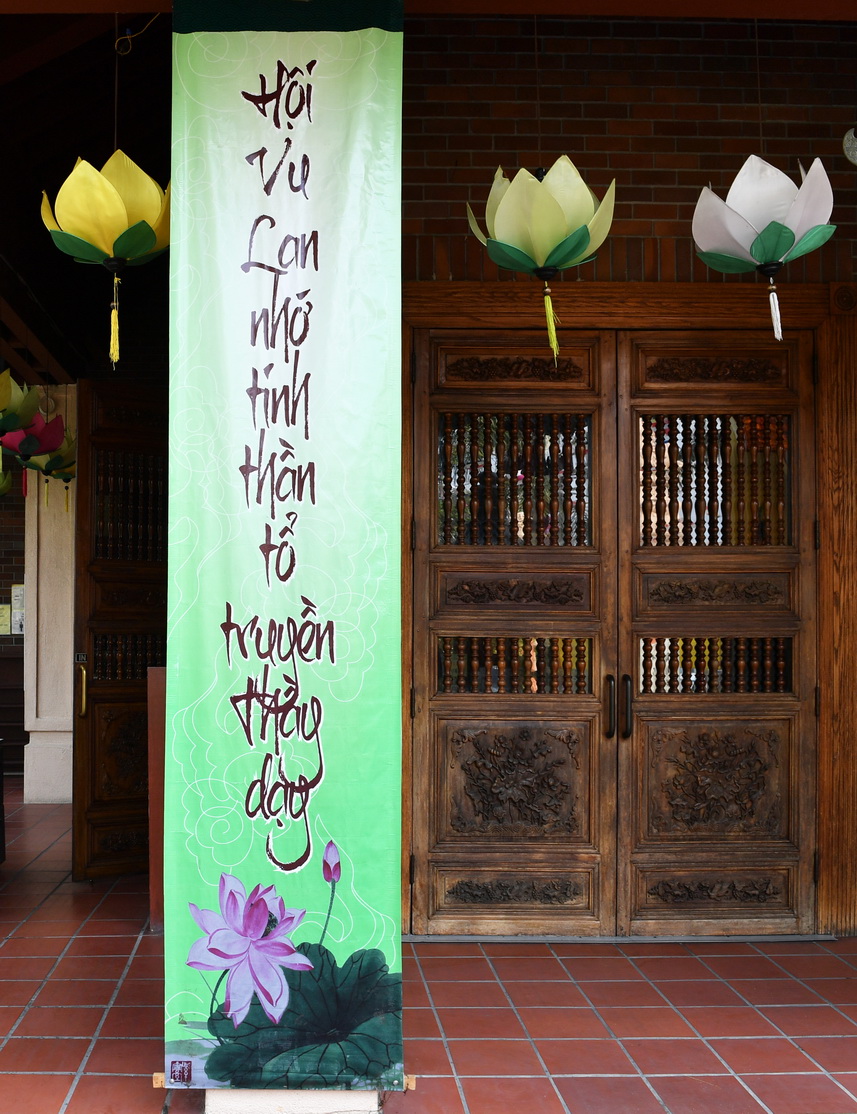 Hội
Vu
Lan
nhớ
tính
thần
tổ
truyền
thầy
dạy
IN